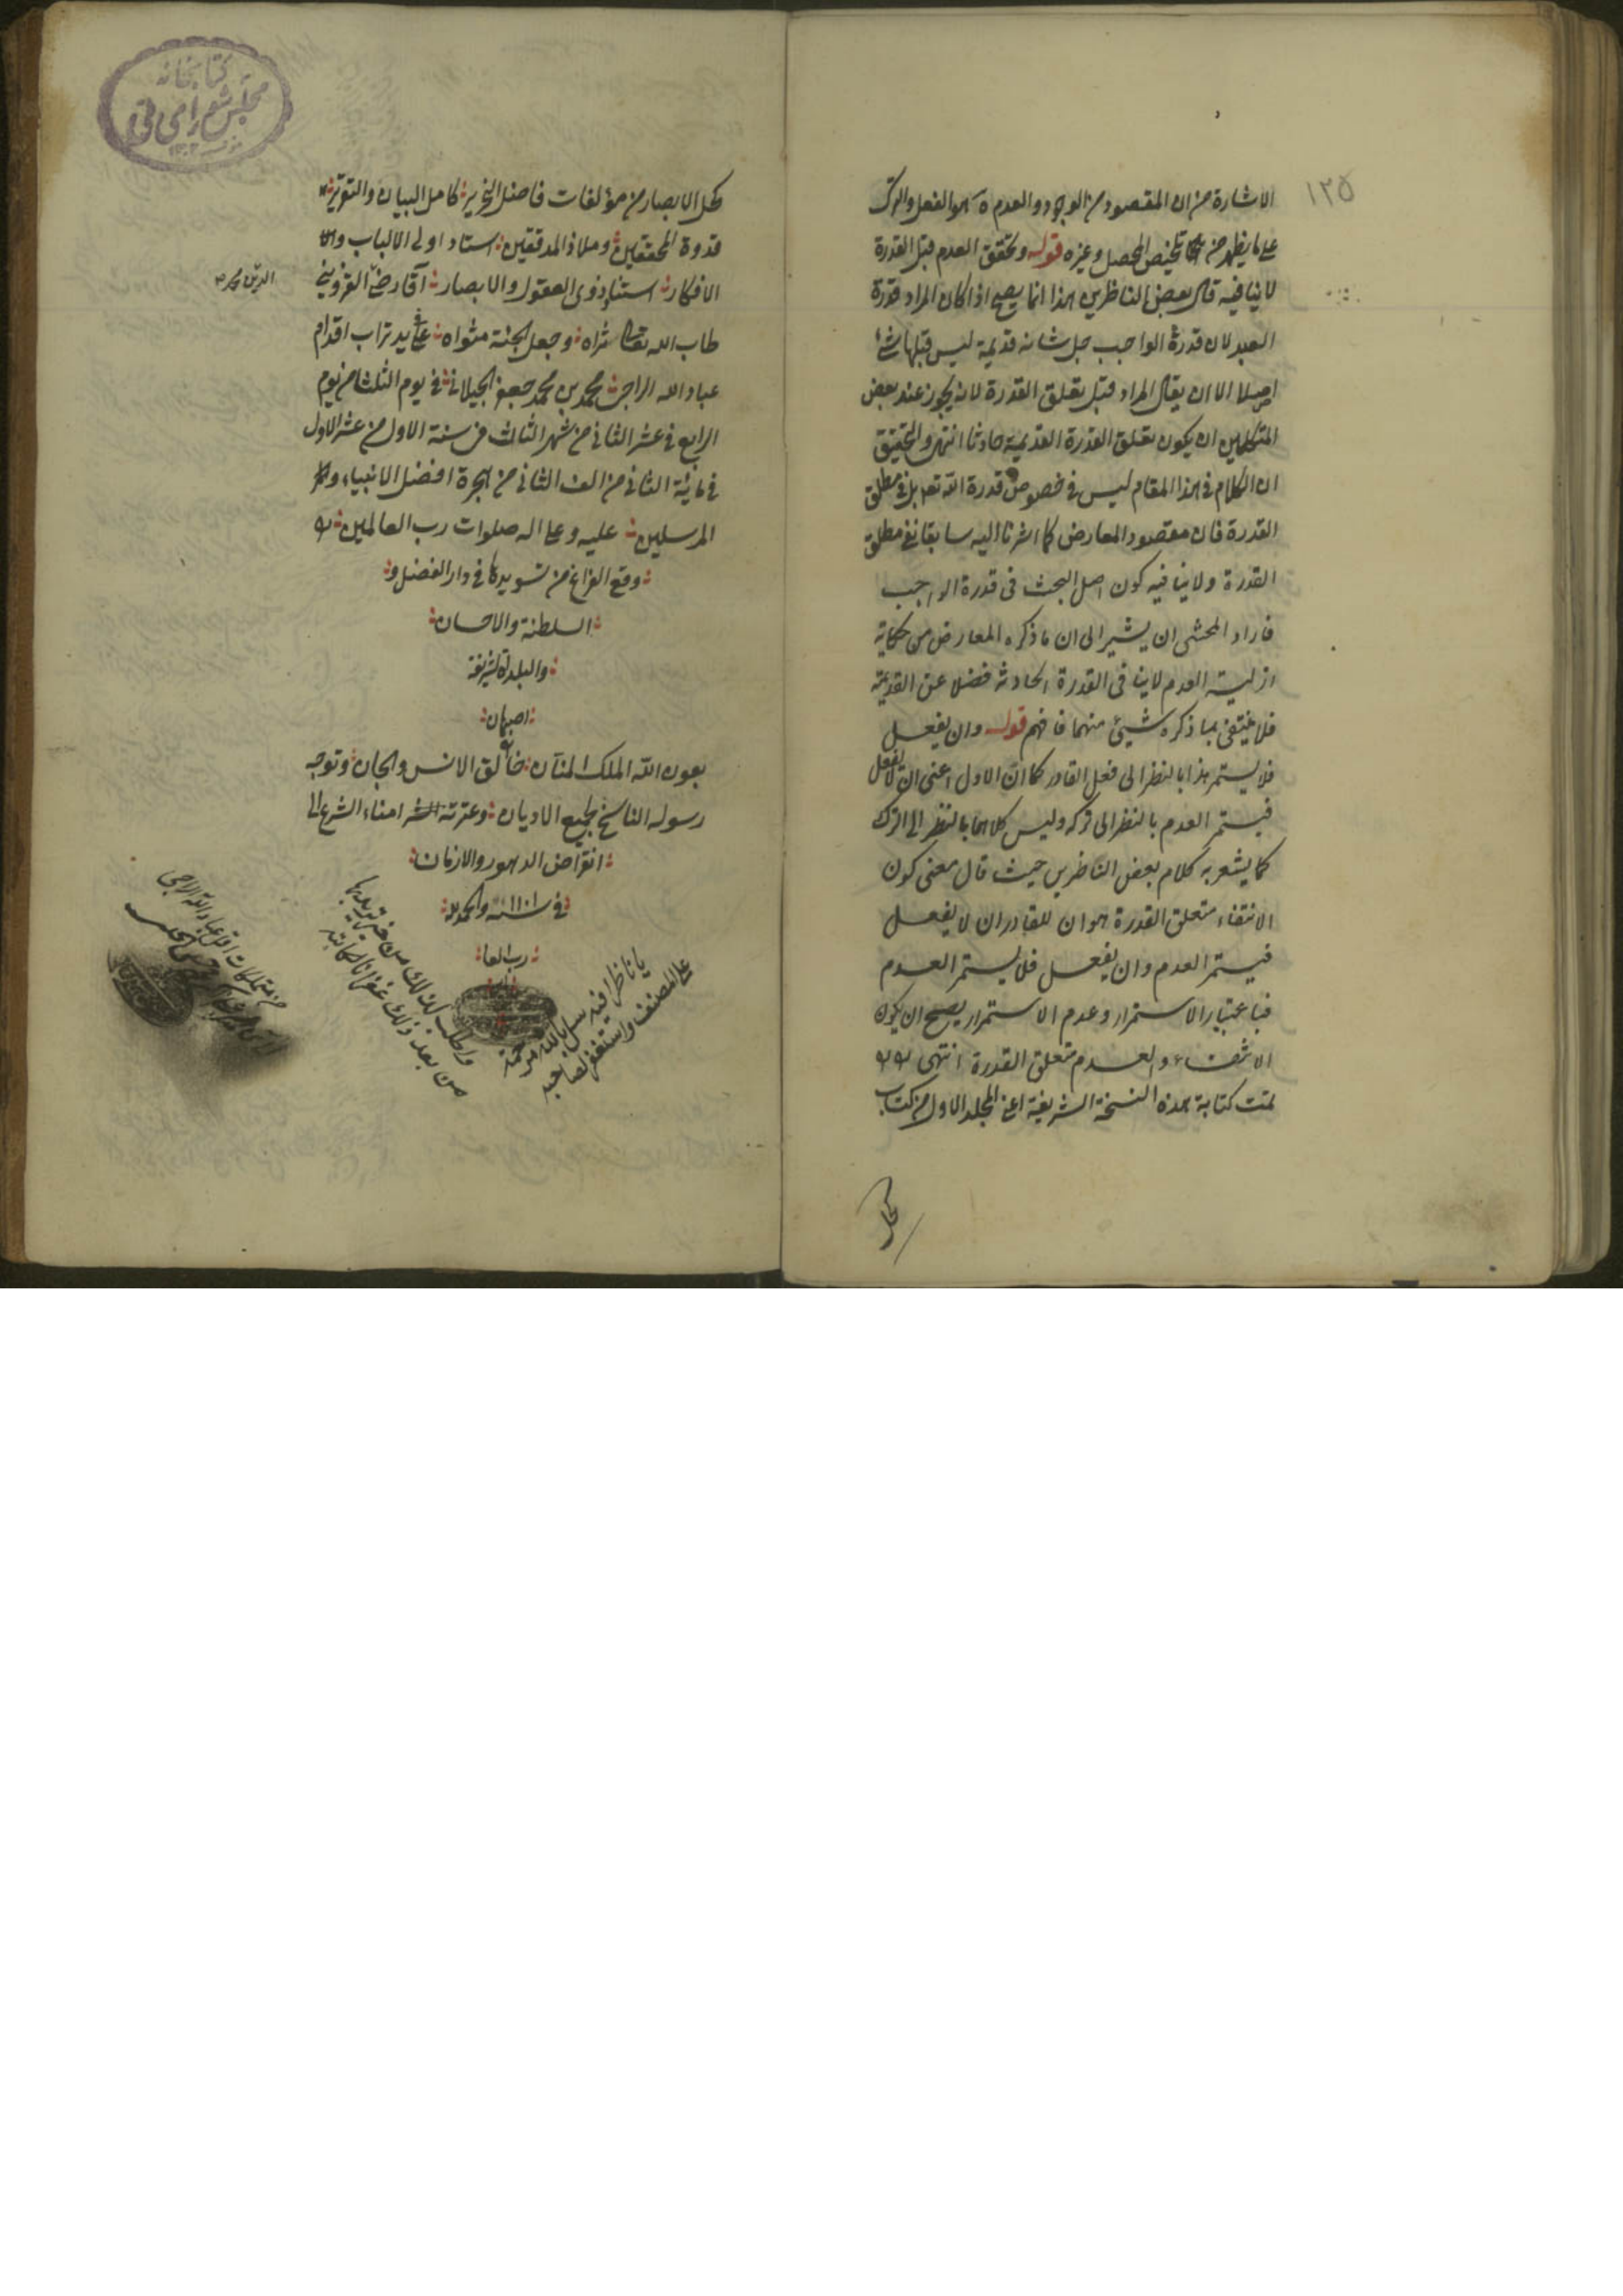 ١٢٥
الاشارة من ان المقصود من الوجود والعدم هو الفعل والترك
على ما يظهر من تلخيص المحصل وغيره قوله وتحقق العدم قبل القدرة
لا ينافيه قال بعض الناظرين هذا انما يصح اذا كان المراد قدرة
العبد لان قدرة الواجب جل شانه قديمة ليس قبلها شئ
اصلا الا ان يقال المراد قبل تعلق القدرة لانه يجوز عند بعض
المتكلمين ان يكون تعلق القدرة القديمة حادثا انتهى والتحقيق
ان الكلام فى هذا المقام ليس فى خصوص قدرة الله تعه بل فى مطلق
القدرة فان مقصود المعارض كما اشرنا اليه سابقا نفى مطلق
القدرة ولا ينافيه كون اصل البحث فى قدرة الواجب
فاراد المحشى ان يشير الى ان ما ذكره المعارض من حكاية
ازلية العدم لا ينافى القدرة الحادثة فضلا عن القديمة
فلا ينتفى بما ذكره شيئ منهما فافهم قوله وان يفعل
فلا يستمر هذا بالنظر الى فعل القادر كما ان الاول اعنى ان لا يفعل
فيستمر العدم بالنظر الى تركه وليس كلاهما بالنظر الى الترك
كما يشعر به كلام بعض الناظرين حيث قال معنى كون
الانتفاء متعلق القدرة هو ان للقادر ان لا يفعل
فيستمر العدم وان يفعل فلا يستمر العدم
فباعتبار الاستمرار وعدم الاستمرار يصح ان يكون
الانتفاء والعدم متعلق القدرة انتهى
تمت كتابة هذه النسخة الشريفة اعنى المجلد الاول من كتاب
كحل
كتابخانه
مجلس شوراى ملى
كحل الابصار من مؤلفات فاضل النحرير كامل البيان والتقرير
قدوة المحققين وملاذ المدققين استاد اولى الالباب و
الافكار استناد ذوى العقول والابصار آقا رضى القزوينى
الدين محمد
طاب الله تعالى ثراه وجعل الجنة مثواه على يد تراب اقدام
عباد الله الراجى محمد بن محمد جعفر الجيلانى فى يوم الثلثا من يوم
الرابع فى عشر الثانى من شهر الثالث من سنة الاول من عشر الاول
فى مائة الثانى من الف الثانى من هجرة افضل الانبياء و
المرسلين عليه وعلى اله صلوات رب العالمين
وقع الفراغ من تسويدها فى دار الفضل و
السلطنة والاحسان
والبلدة الشريفة
اصبهان
بعون الله الملك المنان خالق الانس والجان وتوجه
رسوله الناسخ لجميع الاديان وعترته امناء الشرع الى
انقراض الدهور والازمان
فى سنة ١١٠١ والحمد لله
رب العا
يا ناظرا فيه سل بالله مرحمة
على المصنف واستغفر لصاحبه
واطلب لنفسك من خير تريد بها
من بعد ذلك غفرانا لكاتبه
من متملكات اقل عباد الله الراجى